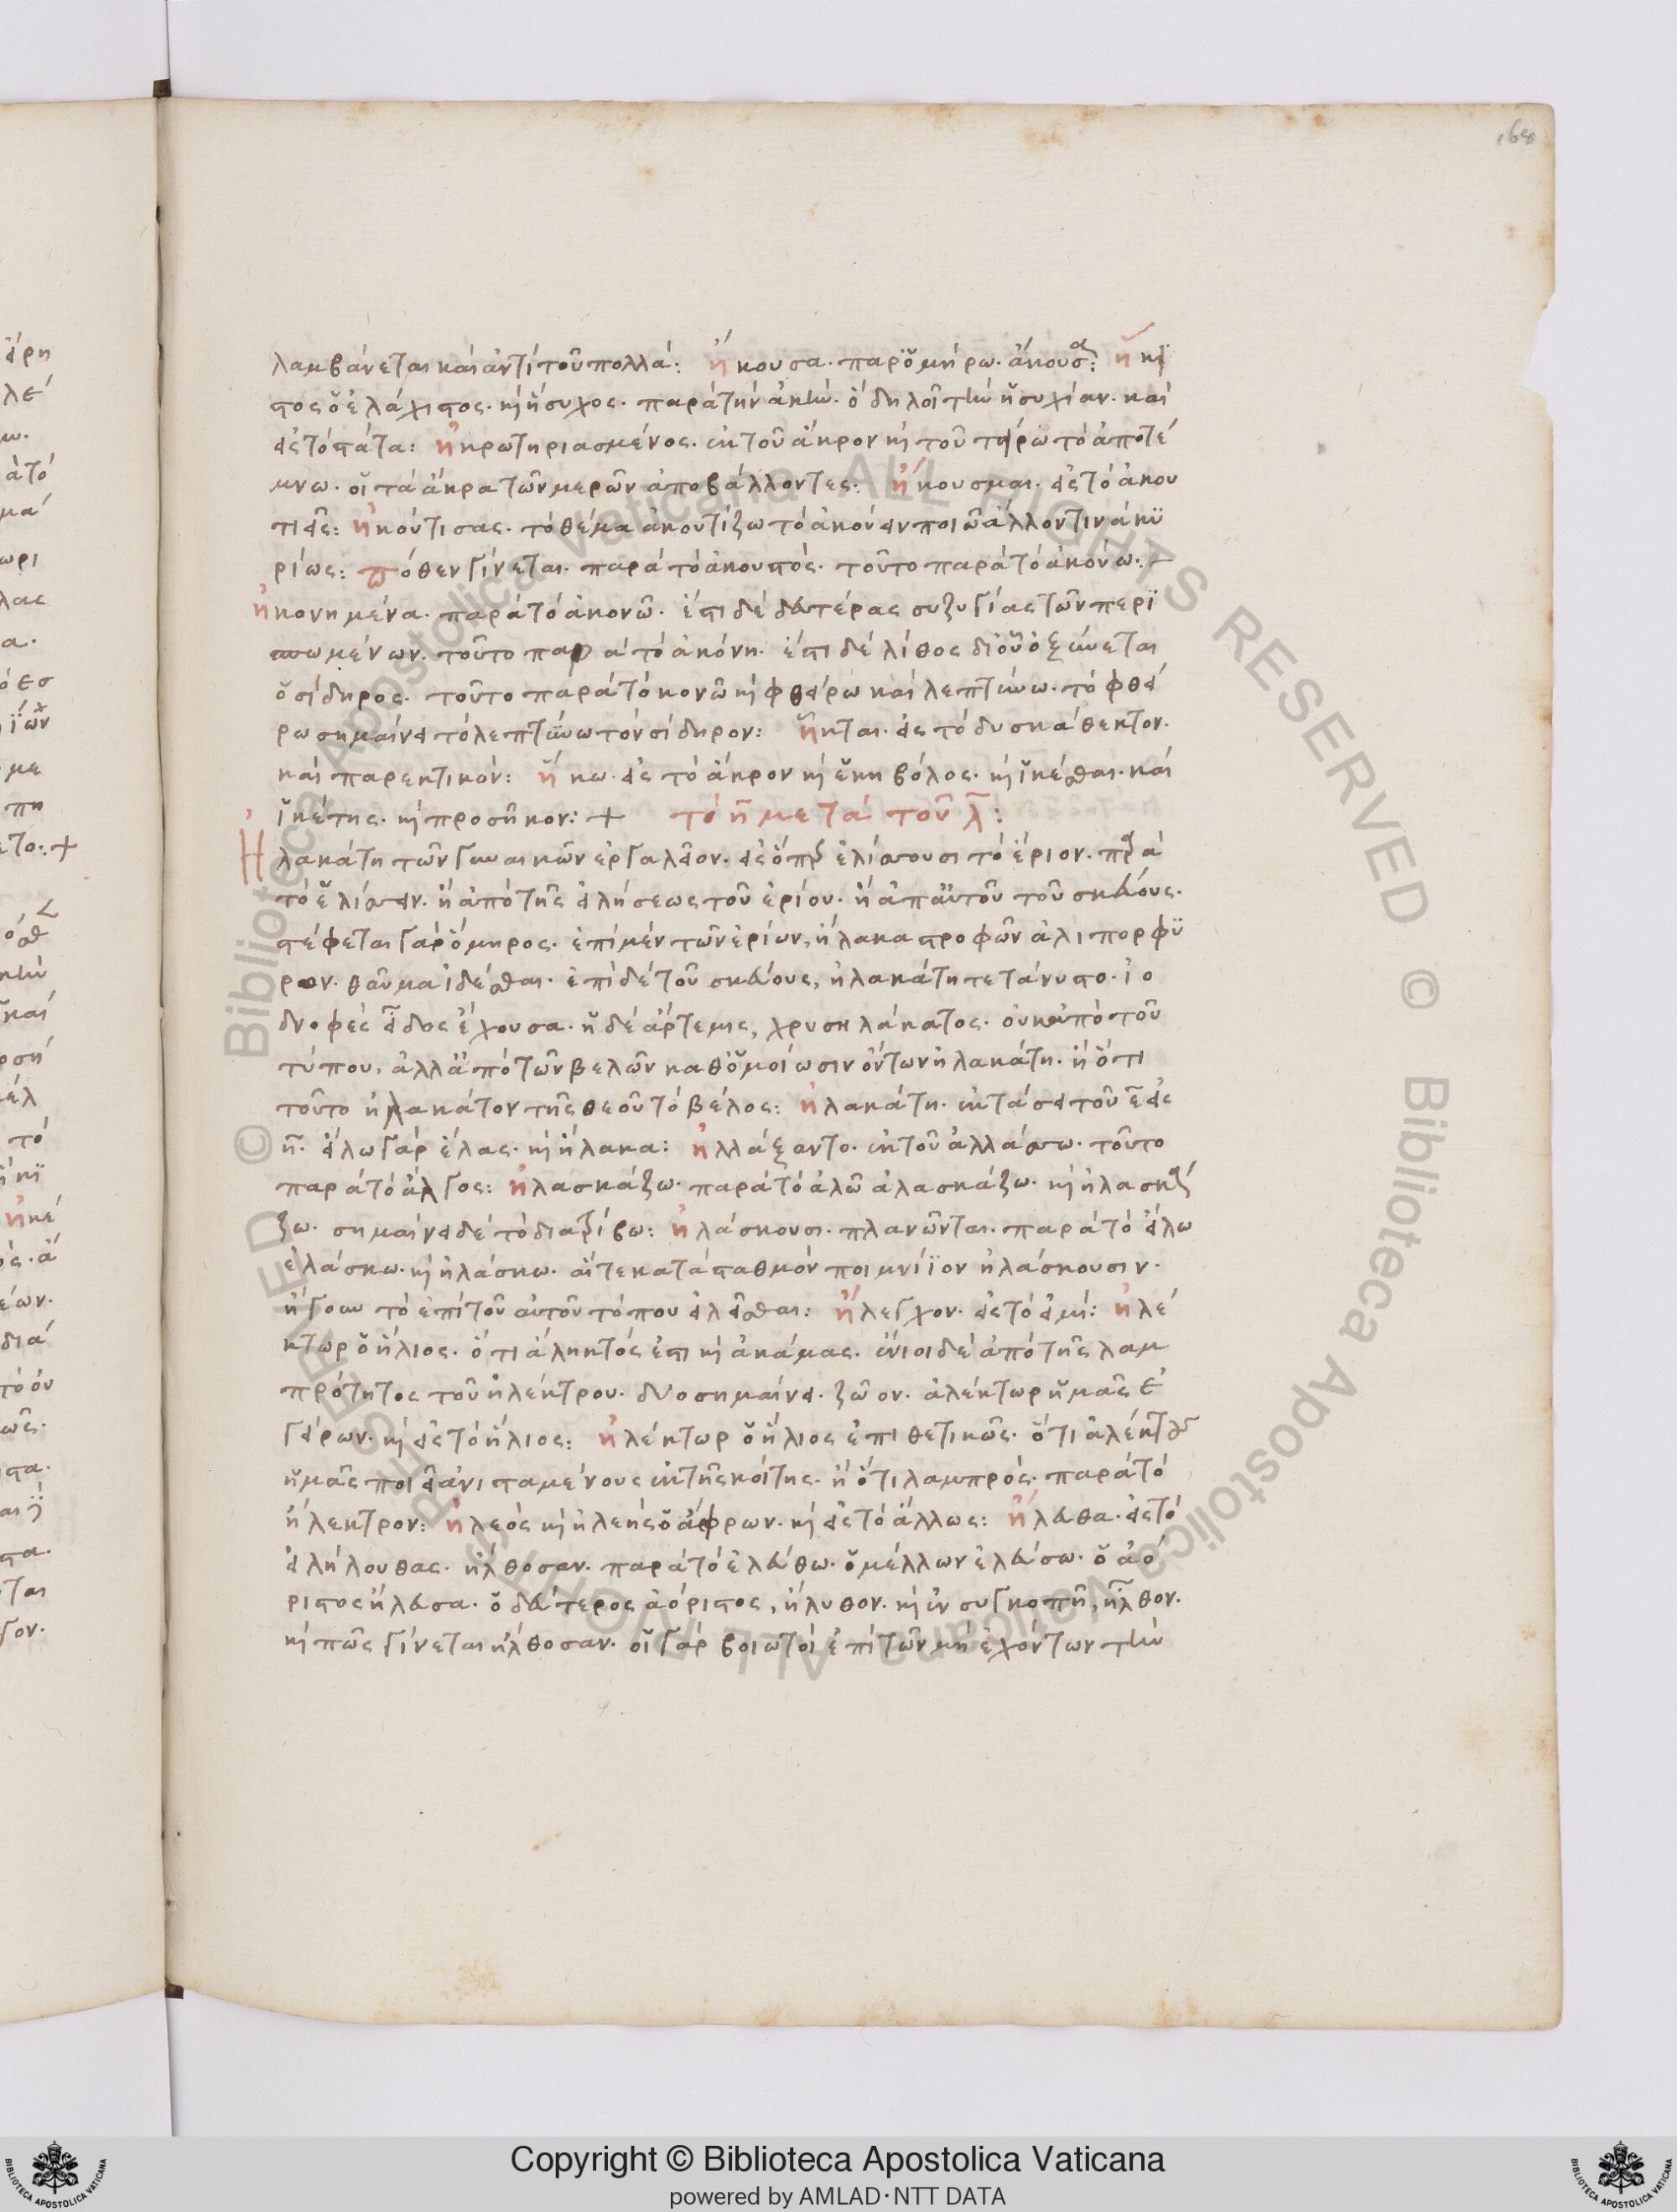 168
λαμβάνεται καὶ ἀντὶ τοῦ πολλά: ἤκουσα. παρ' ὁμήρω. ἄκουσα: ἤκι
στος ὁ ἐλάχιστος. καὶ ἥσυχος. παρὰ τὴν ἀκὴν. ὃ δηλοῖ τὴν ἡσυχίαν. καὶ
εἰς τὸ στάτα: ἠκρωτηριασμένος. ἐκ τοῦ ἄκρον καὶ τοῦ τείρω τὸ ἀποτέ
μνω. οἱ τὰ ἄκρα τῶν μερῶν ἀποβάλλοντες: ἤκουσμαι. εἰς τὸ ἀκου
τιεῖς: ἠκούτισας. τὸ θέμα ἀκουτίζω τὸ ἀκούειν ποιῶ ἄλλον τινὰ κυ
ρίως: πόθεν γίνεται. παρὰ τὸ ἀκουστός. τοῦτο παρὰ τὸ ἀκούω:
ἠκονημένα. παρὰ τὸ ἀκονῶ. ἔστι δὲ δευτέρας συζυγίας τῶν περι
σπωμένων. τοῦτο παρὰ τὸ ἀκόνη. ἔστι δὲ λίθος δι' οὗ ὀξύνεται
ὁ σίδηρος. τοῦτο παρὰ τὸ κονῶ καὶ φθείρω καὶ λεπτύνω. τὸ φθεί
ρω σημαίνει τὸ λεπτύνω τὸν σίδηρον: ἧκται. εἰς τὸ δυσκάθεκτον.
καὶ παρεκτικόν: ἥκω. εἰς τὸ ἄκρον καὶ ἑκηβόλος. καὶ ἱκέσθαι. καὶ
ἱκέτης. καὶ προσῆκον: + τὸ η μετὰ τοῦ λ:
Ηλακάτη τῶν γυναικῶν ἐργαλεῖον. εἰς ὅπερ ἑλίσσουσι τὸ ἔριον. παρὰ
τὸ ἑλίσσειν. ἢ ἀπὸ τῆς εἰλήσεως τοῦ ἐρίου. ἢ ἀπ' αὐτοῦ τοῦ σκεύους.
στέφεται γὰρ ὅμηρος. ἐπὶ μὲν τῶν ἐρίων, ἠλακα στροφῶν ἁλιπορφυ
ρων. θαῦμα ἰδέσθαι. ἐπὶ δὲ τοῦ σκεύους, ἠλακάτη τετάνυστο. ἰο
δνοφὲς εἶδος ἔχουσα. ἡ δὲ ἄρτεμις, χρυσηλάκατος. οὐκ ἀπὸ τοῦ
τύπου, ἀλλ' ἀπὸ τῶν βελῶν καθ' ὁμοίωσιν ὄντων ἠλακάτη. ἢ ὅτι
τοῦτο ἠλακάτον τῆς θεοῦ τὸ βέλος: ἠλακάτη. ἐκτάσει τοῦ ε εἰς
η. εἴλω γὰρ ἕλας. καὶ ἤλακα: ἠλλάξαντο. ἐκ τοῦ ἀλλάσσω. τοῦτο
παρὰ τὸ ἄλγος: ἠλασκάζω. παρὰ τὸ ἀλῶ ἀλασκάζω. καὶ ἠλασκά
ζω. σημαίνει δὲ τὸ διατρίβω: ἠλάσκουσι. πλανῶνται. παρὰ τὸ ἄλω
ἐλάσκω. καὶ ἠλάσκω. αἵτε κατὰ σταθμὸν ποιμνίϊον ἠλάσκουσιν.
ἤγουν τὸ ἐπὶ τοῦ αὐτοῦ τόπου εἰλεῖσθαι: ἤλεγχον. εἰς τὸ εἰμί: ἠλέ
κτωρ ὁ ἥλιος. ὅτι ἄληκτός ἐστι καὶ ἀκάμας. ἔνιοι δὲ ἀπὸ τῆς λαμ
πρότητος τοῦ ἠλέκτρου. δύο σημαίνει. ζῶον. ἀλέκτωρ ἡμᾶς ε'
γείρων. καὶ εἰς τὸ ἥλιος: ἠλέκτωρ ὁ ἥλιος ἐπιθετικῶς. ὅτι ἀλέκτρ
ἡμᾶς ποιεῖ ἀνισταμένους ἐκ τῆς κοίτης. ἢ ὅτι λαμπρός. παρὰ τὸ
ἤλεκτρον: ἠλεὸς καὶ ἠλεής ὁ ἄφρων. καὶ εἰς τὸ ἄλλως: ἤλευθα. εἰς τὸ
εἰλήλουθας. ἤλθοσαν. παρὰ τὸ ἐλεύθω. ὁ μέλλων ἐλεύσω. ὁ ἀό
ριστος ἤλευσα. ὁ δεύτερος ἀόριστος, ἤλυθον. καὶ ἐν συγκοπῇ, ἦλθον.
καὶ πῶς γίνεται ἤλθοσαν. οἱ γὰρ βοιωτοὶ ἐπὶ τῶν μὴ ἐχόντων τὴν
Copyright © Biblioteca Apostolica Vaticana
powered by AMLAD·NTT DATA